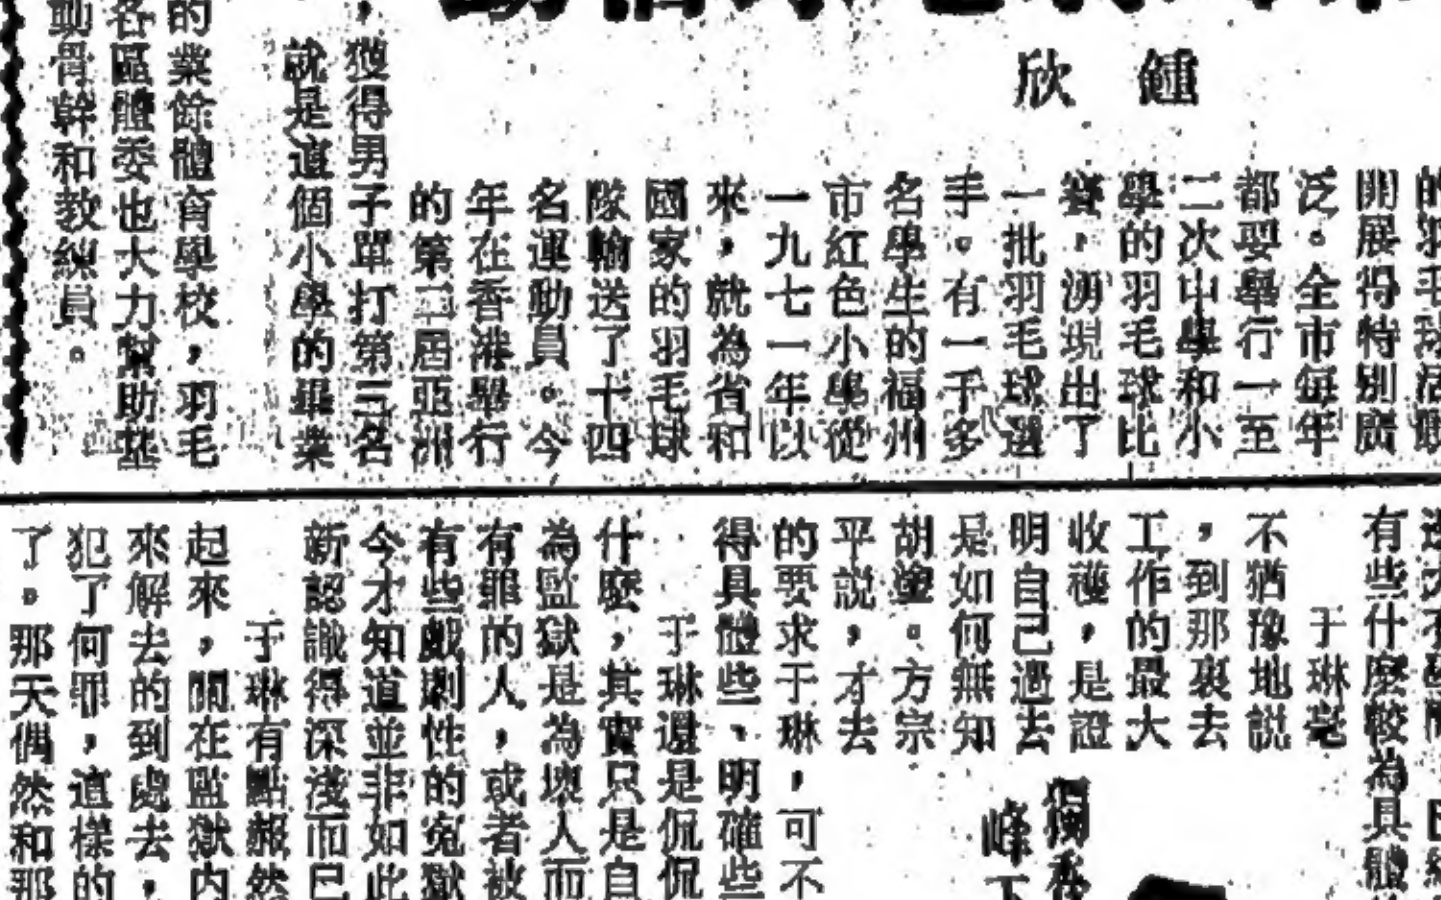 鍾欣
開展得特別廣
泛。全市每年
都要舉行一至
二次中學和小
學的羽毛球比
賽，湧現出了
一批羽毛球選
手。有一千多
名學生的福州
市紅色小學從
一九七一年以
來，就為省和
國家的羽毛球
隊輸送了十四
名運動員。今
年在香港舉行
的第三屆亞洲
，獲得男子單打第三名
就是這個小學的畢業
的業餘體育學校，羽毛
各區體委也大力幫助基
動骨幹和教練員。
有些什麼較為具體
于琳毫
不猶豫地説
，到那裏去
工作的最大
收穫，是證
明自己過去
是如何無知
胡塗。方宗
平説，才去
的要求于琳，可不
得具體些、明確些
于琳還是侃侃
什麼，其實只是自
為監獄是為壞人而
有罪的人，或者被
有些戲劇性的冤獄
今才知道並非如此
新認識得深淺而已
于琳有點赧然
起來，關在監獄内
來解去的到處去，
犯了何罪，這樣的
了。那天偶然和那
峰下